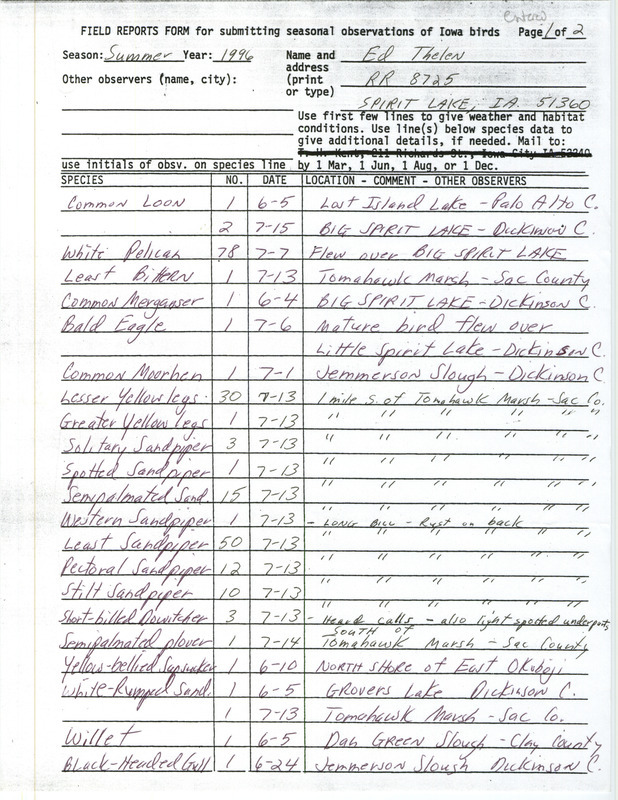 entered
FIELD REPORTS FORM for submitting seasonal observations of Iowa birds Page 1 of 2
Season: Summer Year: 1996 Name and Ed Thelen
address
Other observers (name, city): (print RR 8725
or type)
SPIRIT LAKE, IA 51360
Use first few lines to give weather and habitat
conditions. Use line(s) below species data to
give additional details, if needed. Mail to:
T. H. Kent, 211 Richards St., Iowa City IA 52240
use initials of obsv. on species line by 1 Mar, 1 Jun, 1 Aug, or 1 Dec.
SPECIES NO. DATE LOCATION - COMMENT - OTHER OBSERVERS
Common Loon 1 6-5 Lost Island Lake - Palo Alto C.
2 7-15 BIG SPIRIT LAKE - Dickinson C.
White Pelican 78 7-7 Flew over BIG SPIRIT LAKE
Least Bittern 1 7-13 Tomahawk Marsh - Sac County
Common Merganser 1 6-4 BIG SPIRIT LAKE - Dickinson C.
Bald Eagle 1 7-6 Mature bird flew over
Little Spirit Lake - Dickinson C.
Common Moorhen 1 7-1 Jemmerson Slough - Dickinson C.
Lesser Yellowlegs 30 7-13 1 mile S. of Tomahawk Marsh - Sac Co.
Greater Yellowlegs 1 7-13 " " " " " "
Solitary Sandpiper 3 7-13 " " " " " "
Spotted Sandpiper 1 7-13 " " " " " "
Semipalmated Sand. 15 7-13 " " " " " "
Western Sandpiper 1 7-13 - LONG Bill - Rust on back
Least Sandpiper 50 7-13 " " " " " "
Pectoral Sandpiper 12 7-13 " " " " " "
Stilt Sandpiper 10 7-13 " " " " " "
Short-billed Dowitcher 3 7-13 - Heard calls - also light spotted underparts
SOUTH OF
Semipalmated plover 1 7-14 Tomahawk Marsh - Sac County
Yellow-bellied Sapsucker 1 6-10 NORTH SHORE of East Okoboji
White-Rumped Sand. 1 6-5 Grovers Lake Dickinson C.
1 7-13 Tomahawk Marsh - Sac Co.
Willet 1 6-5 Dan GREEN Slough - Clay County
BLACK-Headed Gull 1 6-24 Jemmerson Slough Dickinson C.